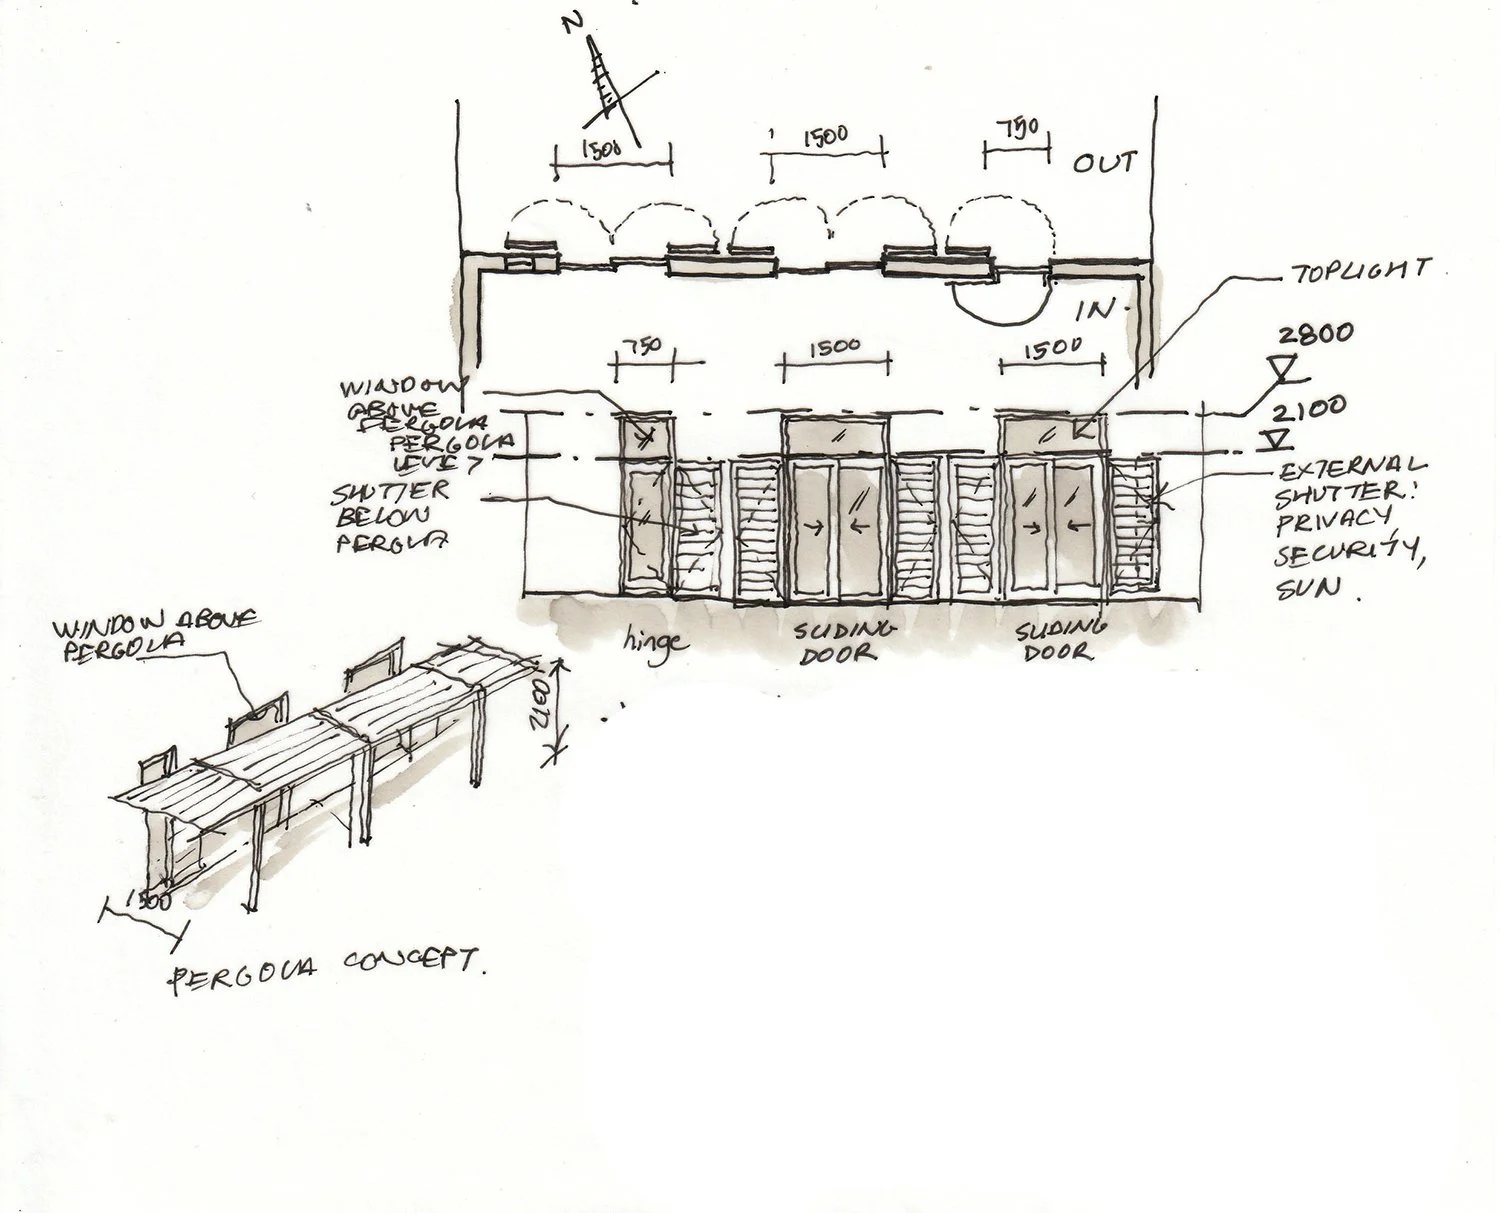 N
1500
1500
750
OUT
IN.
TOPLIGHT
2800
2100
750
1500
1500
WINDOW
ABOVE
PERGOLA
PERGOLA
SHUTTER
BELOW
PERGOLA
EXTERNAL
SHUTTER:
PRIVACY
SECURITY,
SUN.
hinge
SLIDING
DOOR
SLIDING
DOOR
WINDOW ABOVE
PERGOLA
2100
1500
PERGOLA CONCEPT.